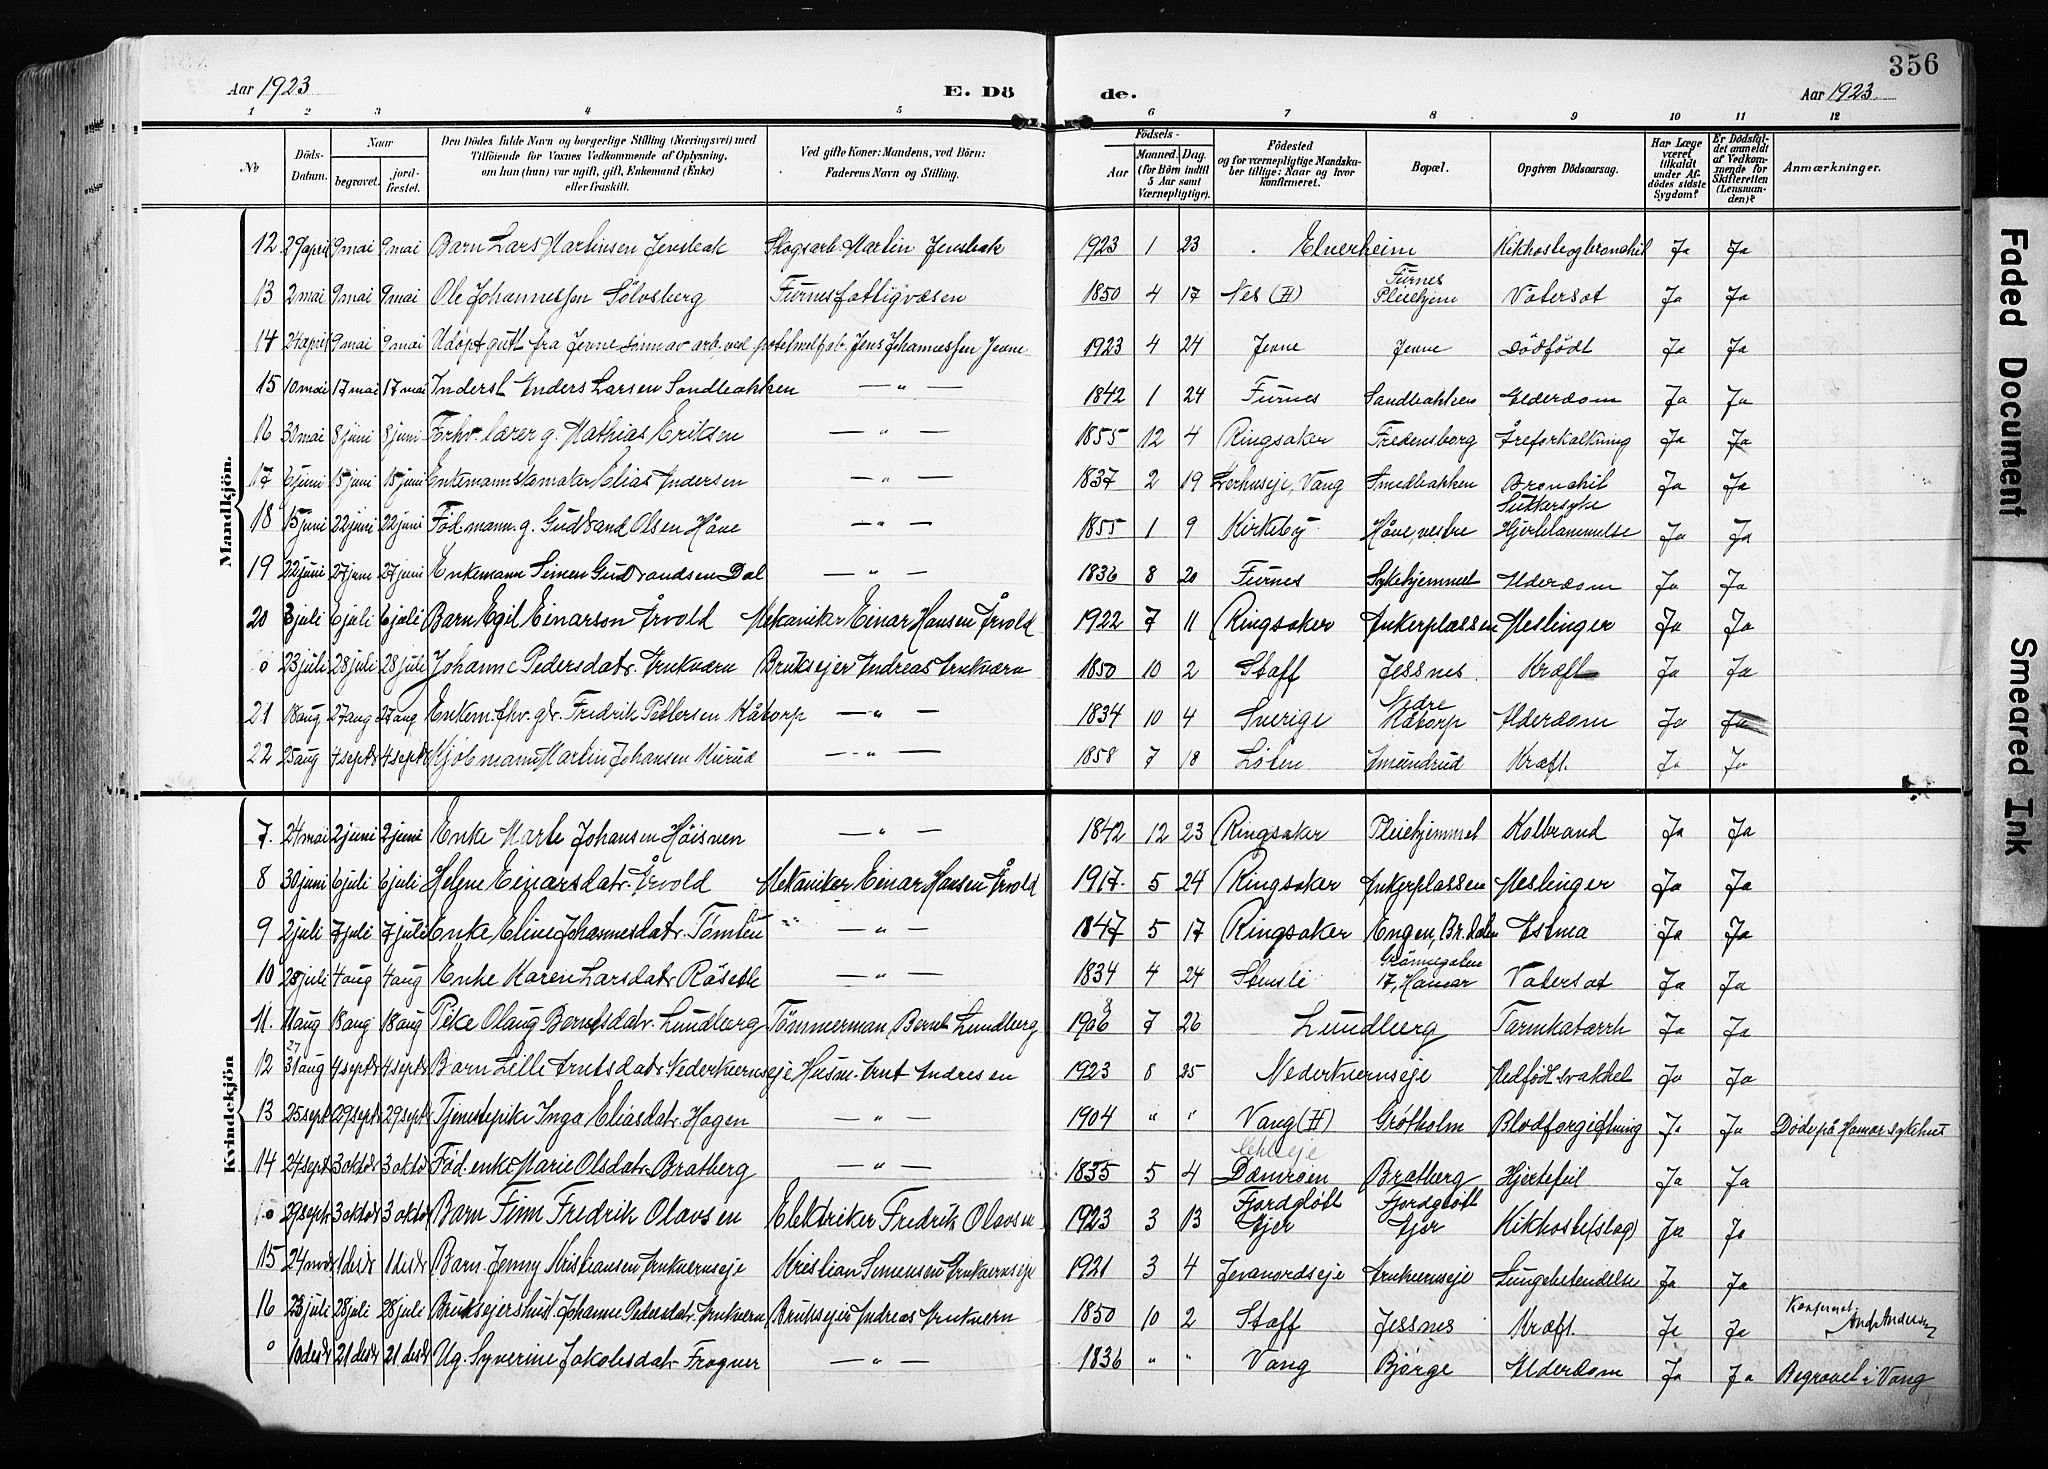 356
Aar 1923
E. Dö
de.
Aar 1923.
1 2 3 4 5 6 7 8 9 10 11 12
No
Döds-Datum.
Naar
begravet.
jord-fæstet.
Den Dödes fulde Navn og borgerlige Stilling (Næringsvei) med
Tilföiende for Voxnes Vedkommende af Oplysning,
om han (hun) var ugift, gift, Enkemand (Enke)
eller fraskilt.
Ved gifte Koner: Mandens, ved Börn:
Faderens Navn og Stilling.
Födsels-
Aar
Maaned. Dag.
(for Börn indtil
5 Aar samt
Værnepligtige).
Födested
og for værnepligtige Mandska-
ber tillige: Naar og hvor
konfirmeret.
Bopæl.
Opgiven Dödsaarsag.
Har Læge
været
tilkaldt
under Af-
dödes sidste
Sygdom?
Er Dödsfal-
det anmeldt
af Vedkom-
mende for
Skifteretten
(Lensman-
den)?
Anmærkninger.
Mandkjön.
12 29 april 9 mai 9 mai Barn Lars Martinsen Jensbak Skogsarb. Martin Jensbak 1923 1 23 Elverheim Kikhoste og bronchit Ja Ja
13 2 mai 9 mai 9 mai Ole Johannessen Sölvsberg Furnes fattigvæsen 1850 4 17 Nes (H) Furnes Pleiehjem Vatersot Ja Ja
14 24 april 9 mai 9 mai Udöpt gutt fra Jevne sönn av arb. ved potetmelfab. Jens Johannessen Jevne 1923 4 24 Jevne Jevne Dödfödt Ja Ja
15 10 mai 17 mai 17 mai Inderst Anders Larsen Sandbakken — " — 1842 1 24 Furnes Sandbakken Alderdom Ja Ja
16 30 mai 8 juni 8 juni Forhv. lærer g. Mathias Eriksen — " — 1855 12 4 Ringsaker Fredensborg Åreforkalkning Ja Ja
17 6 juni 15 juni 15 juni Enkemann skomaker Elias Andersen — " — 1837 2 19 Vang Smedbakken Bronchit Ja Ja
18 15 juni 22 juni 22 juni Föd.mann. g. Gudbrand Olsen Håve — " — 1855 1 9 Kirkeby Håve, vestre Sukkersyke Hjertelammelse Ja Ja
19 22 juni 27 juni 27 juni Enkemann Simen Gudbrandsen Dal — " — 1836 8 20 Furnes Sykehjemmet Alderdom Ja Ja
20 3 juli 6 juli 6 juli Barn Egil Einarson Årvold Mekaniker Einar Hansen Årvold 1922 7 11 Ringsaker Ankerplassen Meslinger Ja Ja
o 23 juli 28 juli 28 juli Johanne Pedersdatr. Arnkværn Bruksejer Andreas Arnkværn 1850 10 2 Staff Jessnes Kræft Ja Ja
21 18 aug 27 aug 27 aug Enkem. fhv. gbr. Fredrik Pettersen Kåtorp — " — 1834 10 4 Sverige Nedre Kåtorp Alderdom Ja Ja
22 25 aug 4 septr 4 septr Kjöbmann Martin Johansen Kurud — " — 1858 7 18 Löten Amundrud Kræft. Ja Ja
Kvindekjön
7. 24 mai 2 juni 2 juni Enke Marte Johansen Höisveen — " — 1842 12 23 Ringsaker Pleiehjemmet Kolbrand Ja Ja
8 30 juni 6 juli 6 juli Helene Einarsdatr. Årvold Mekaniker Einar Hansen Årvold 1917. 5 24 Ringsaker Ankerplassen Meslinger Ja Ja
9 2 juli 7 juli 7 juli Enke Eline Johannesdatr. Tömten — " — 1847 5 17 Ringsaker Engen, Br.dalen Astma Ja Ja
10 28 juli 4 aug 4 aug Enke Karen Larsdatr Röseth — " — 1834 4 24 Stensli Grönnegaten 17, Hamar Vatersot Ja Ja
11. 11 aug 18 aug 18 aug Pike Olaug Berntsdatr. Lundberg Tömmerman Bernt Lundberg 1906 8 7 26 Lundberg Tarmkatarrh Ja Ja
12 31 27 aug 4 septr 4 septr Barn Lille Arntsdatr Nederkvernseje Husm. Arnt Andresen 1923 8 25 Nederkvernseje Medfödt svakhet Ja Ja
13 25 sept 29 septr 29 sept Tjenestepike Inga Eliasdatr. Hagen — " — 1904 " " Vang (H) Grötholm Blodforgiftning Ja Ja Döde på Hamar sykehus
14 24 sept 3 oktobr 3 oktobr Föd. enke Marie Olsdatr. Bratberg — " — 1835 5 4 Dæmroen Bratberg Hjertefeil Ja Ja
o 29 septr 3 oktobr 3 oktobr Barn Finn Fredrik Olavsen Elektriker Fredrik Olavsen 1923 3 13 Fjordgløtt Ajer Fjordgløtt Ajer Kikhoste (slag) Ja Ja
15 24 novbr 1 desbr 1 desbr Barn Jenny Kristiansen Arnkvernseje Kristian Simensen Arnkvernseje 1921 3 4 Jevanordseje Arnkvernseje Lungebetendelse Ja Ja
16 23 juli 28 juli 28 juli Bruksejershust. Johanne Pedersdatr. Arnkvern Bruksejer Andreas Arnkvern 1850 10 2 Staff Jessnes Kræft. Ja Ja Konferert Andr Andersen
o 10 desbr 21 desbr 21 desbr Ug. Syverine Jakobsdatr. Frogner — " — 1836 " " Vang Bjørge Alderdom Ja Ja Begravet i Vang
Faded Document
Smeared Ink